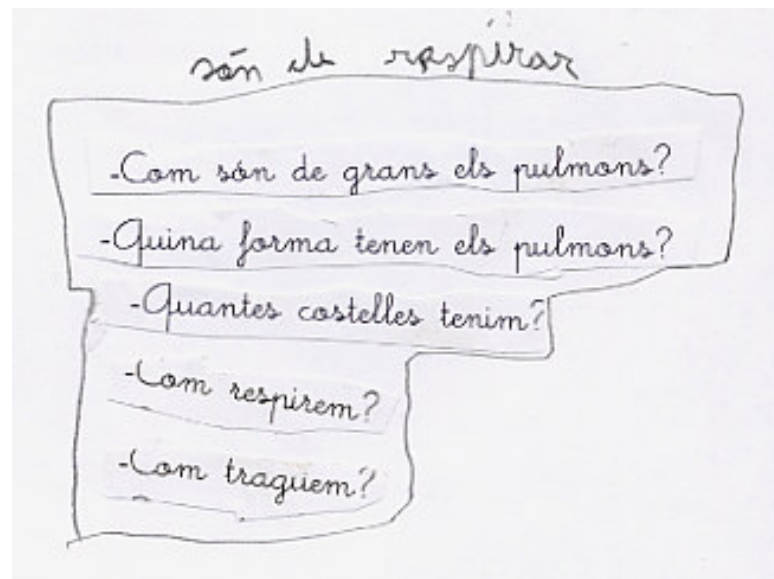 són de respirar
-Com són de grans els pulmons?
-Quina forma tenen els pulmons?
-Quantes costelles tenim?
-Com respirem?
-Com traguem?